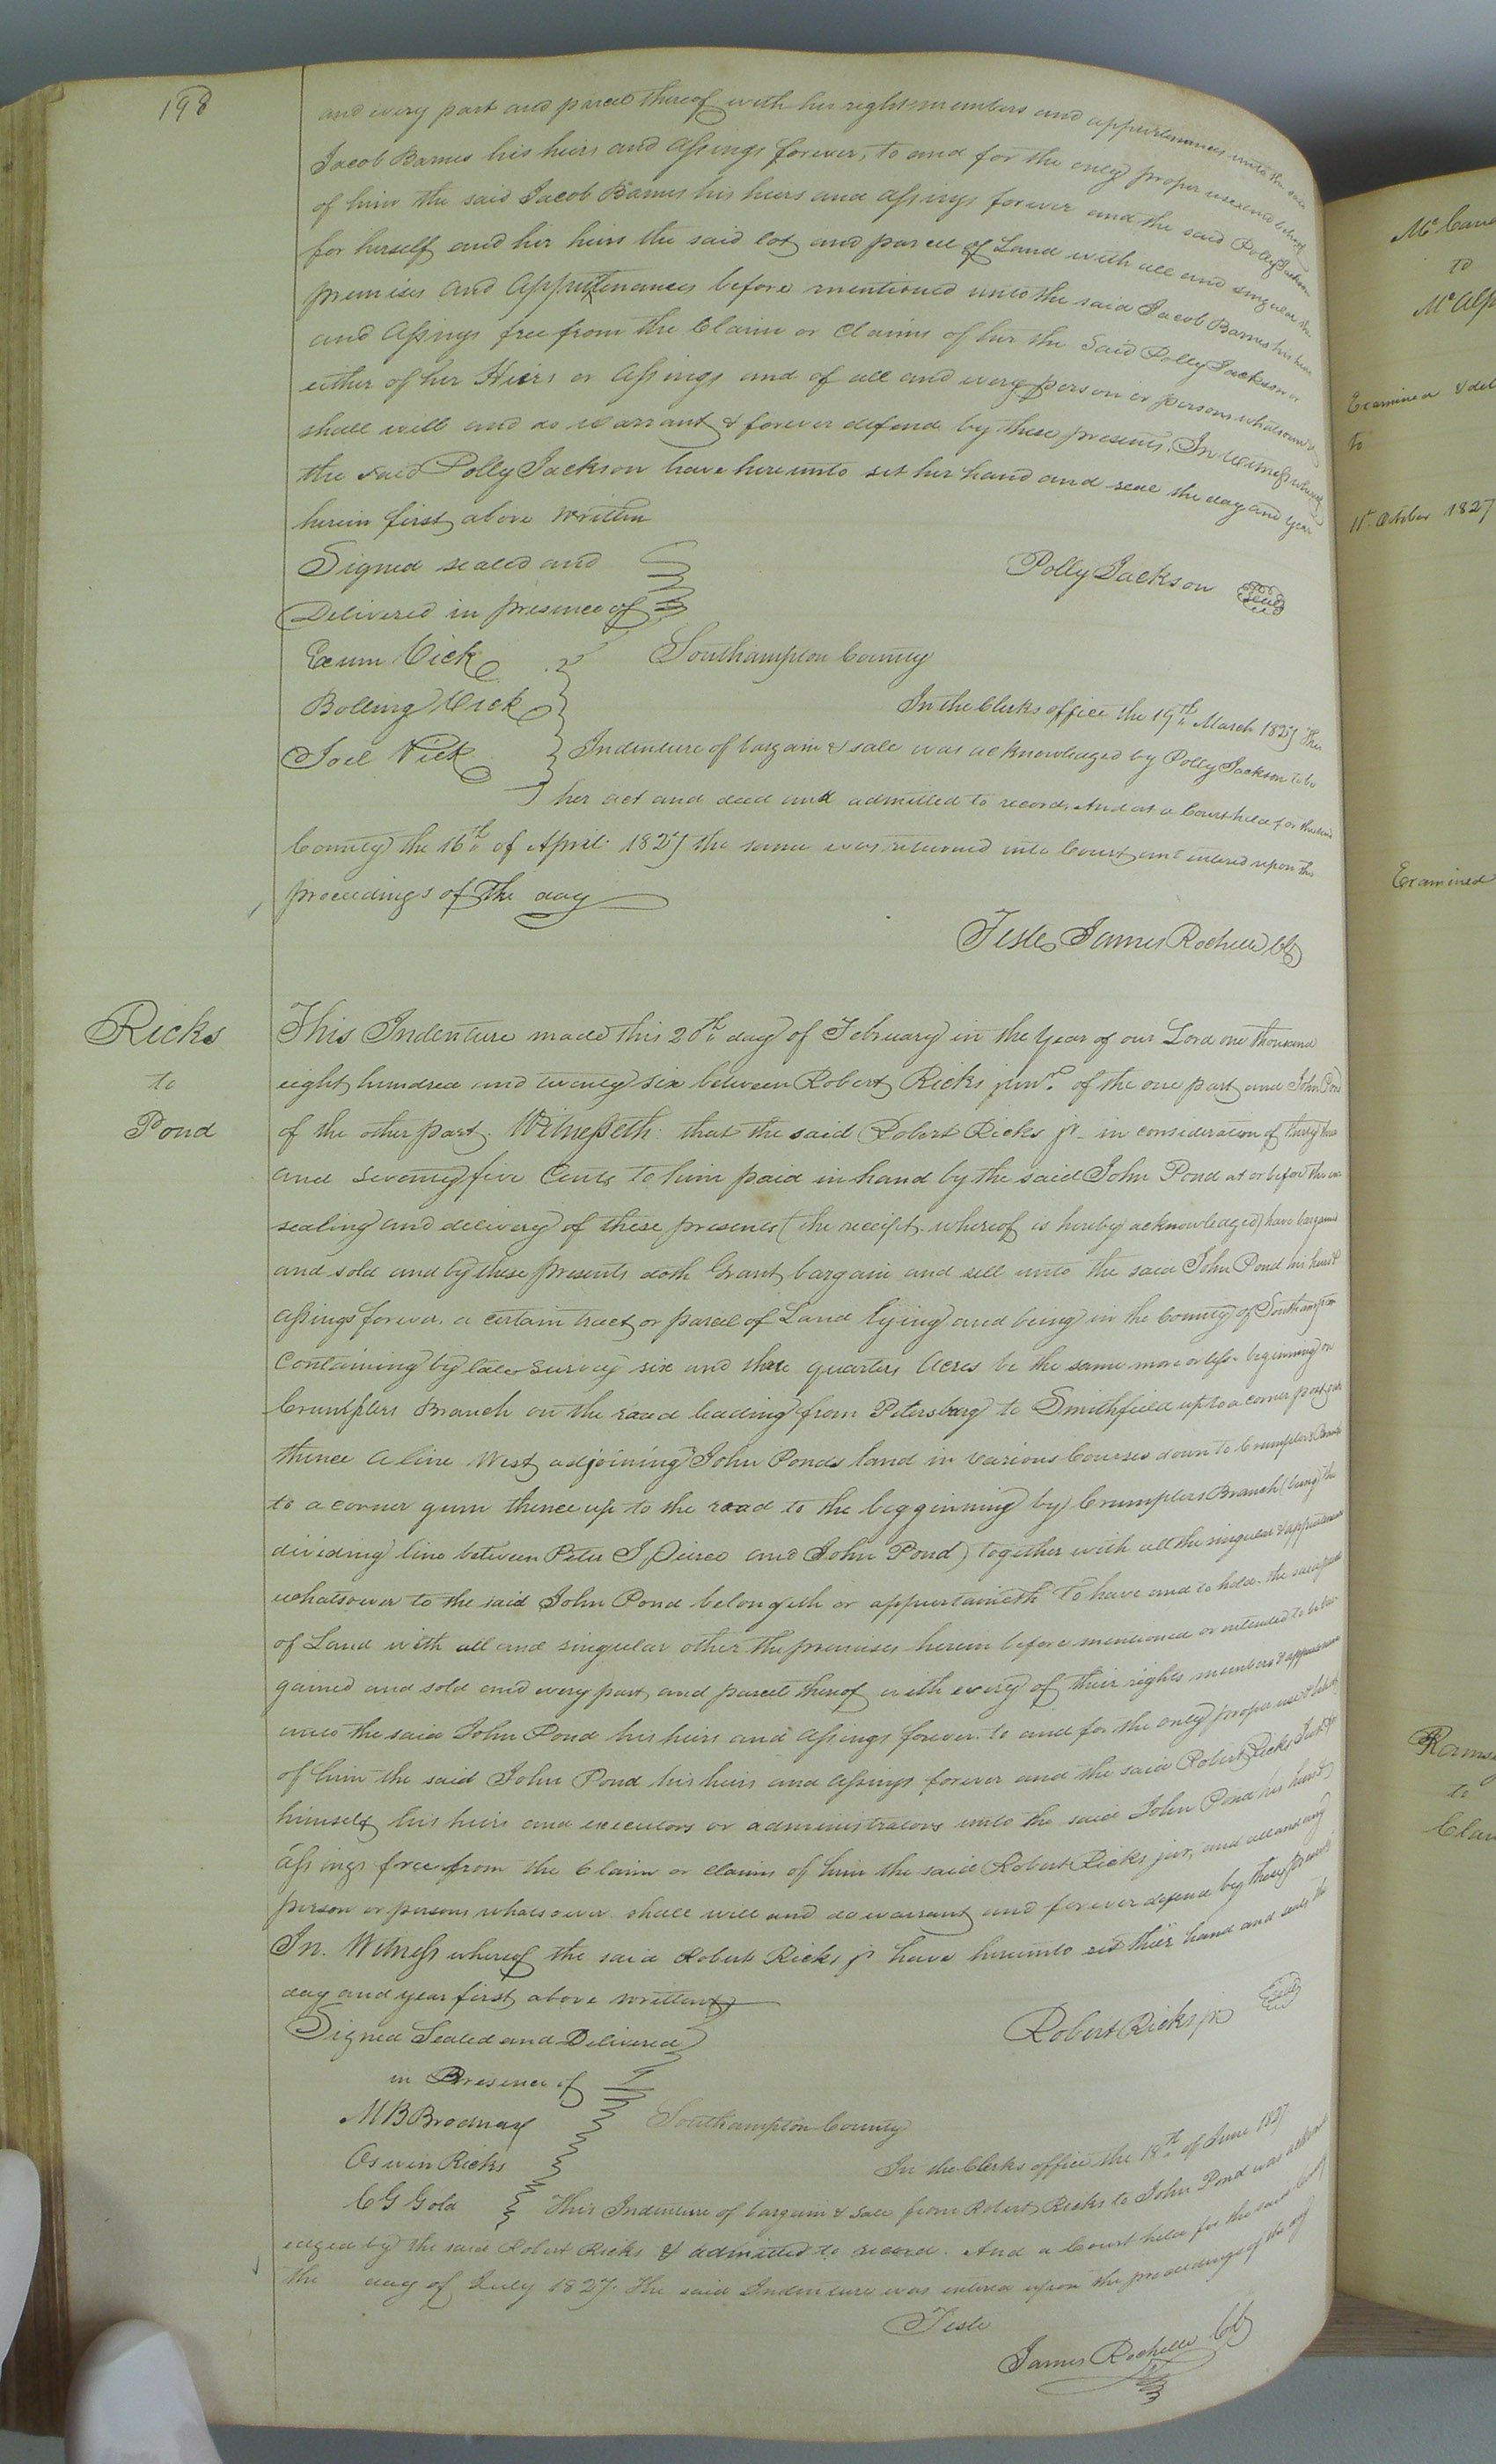 198
and every part and parcel thereof with her rights members and appurtenances unto the said
Jacob Barnes his heirs and Assings forever, to and for the only proper use and behoof
of him the said Jacob Barnes his heirs and assings forever and the said Polly Jackson
for herself and her heirs the said lot and parcell of Land with all and singular the
premises and Appurtenances before mentioned unto the said Jacob Barnes his heirs
and Assings free from the Claim or Claims of her the Said Polly Jackson or
either of her Heirs or Assings and of all and every person or persons whatsoever
shall will and do warrant & forever defend by these presents. In Witness whereof
the said Polly Jackson have hereunto set her hand and seal the day and year
herein first above written
Signed sealed and
Polly Jackson Seal
Delivered in presence of
Exum Vick
Southampton County
Bolling Vick
In the Clerks office the 19th March 1827 This
Joel Vick
Indenture of bargain & sale was acknowledged by Polly Jackson to be
her act and deed and admitted to record And at a Court held for the said
County the 16th of April 1827 the same was returned into Court and entered upon the
proceedings of the day
Teste James Rochelle Cl
Ricks
to
Pond
This Indenture made this 20th day of February in the Year of our Lord one thousand
eight hundred and twenty six between Robert Ricks junr. of the one part and John Pond
of the other part. Witnesseth that the said Robert Ricks jr. in consideration of thirty three
and Seventy five Cents to him paid in hand by the said John Pond at or before the
sealing and delivery of these presents (the receipt whereof is hereby acknowledged) have bargained
and sold and by these presents doth Grant bargain and sell unto the said John Pond his heirs &
assings forever a certain tract or parcel of Land lying and being in the County of Southampton
Containing by late Survey six and three quarters Acres be the same more or less beginning on
Crumplers Branch on the road leading from Petersburg to Smithfield up to a corner post oak
thence a line West adjoining John Ponds land in various Courses down to Crumplers Branch
to a corner gum thence up to the road to the begginning by Crumplers Branch (being the
dividing line between Peter J Pierce and John Pond) together with all the singular & appurtenances
whatsoever to the said John Pond belongeth or appurtaineth To have and to hold the said parcel
of Land with all and singular other the premises herein before mentioned or intended to be bar-
gained and sold and every part and parcel thereof with every of their rights members & appurtenances
unto the said John Pond his heirs and assings forever to and for the only proper use & behoof
of him the said John Pond his heirs and assings forever and the said Robert Ricks Jur. for
himself his heirs and executors or administrators unto the said John Pond his heirs &
Assings free from the Claim or claims of him the said Robert Ricks jur, and all and any
person or persons whatsoever shall will and do warrant and forever defend by these presents
In Witness whereof the said Robert Ricks jr have hereunto set their hand and seals the
day and year first above written
Signed Sealed and Delivered
Robert Ricks jr Seal
in Presence of
M B Brodnax
Southampton County
Oswin Ricks
In the Clerks office the 18th of June 1827
C G Gold
This Indenture of bargain & Sale from Robert Ricks to John Pond was acknowl
edged by the said Robert Ricks & admitted to record. And a Court held for the said County
the day of July 1827. the said Indenture was entered upon the proceedings of the day
Teste
James Rochelle Cl
to
Examined & del
to
11th October 1827
Examined
to